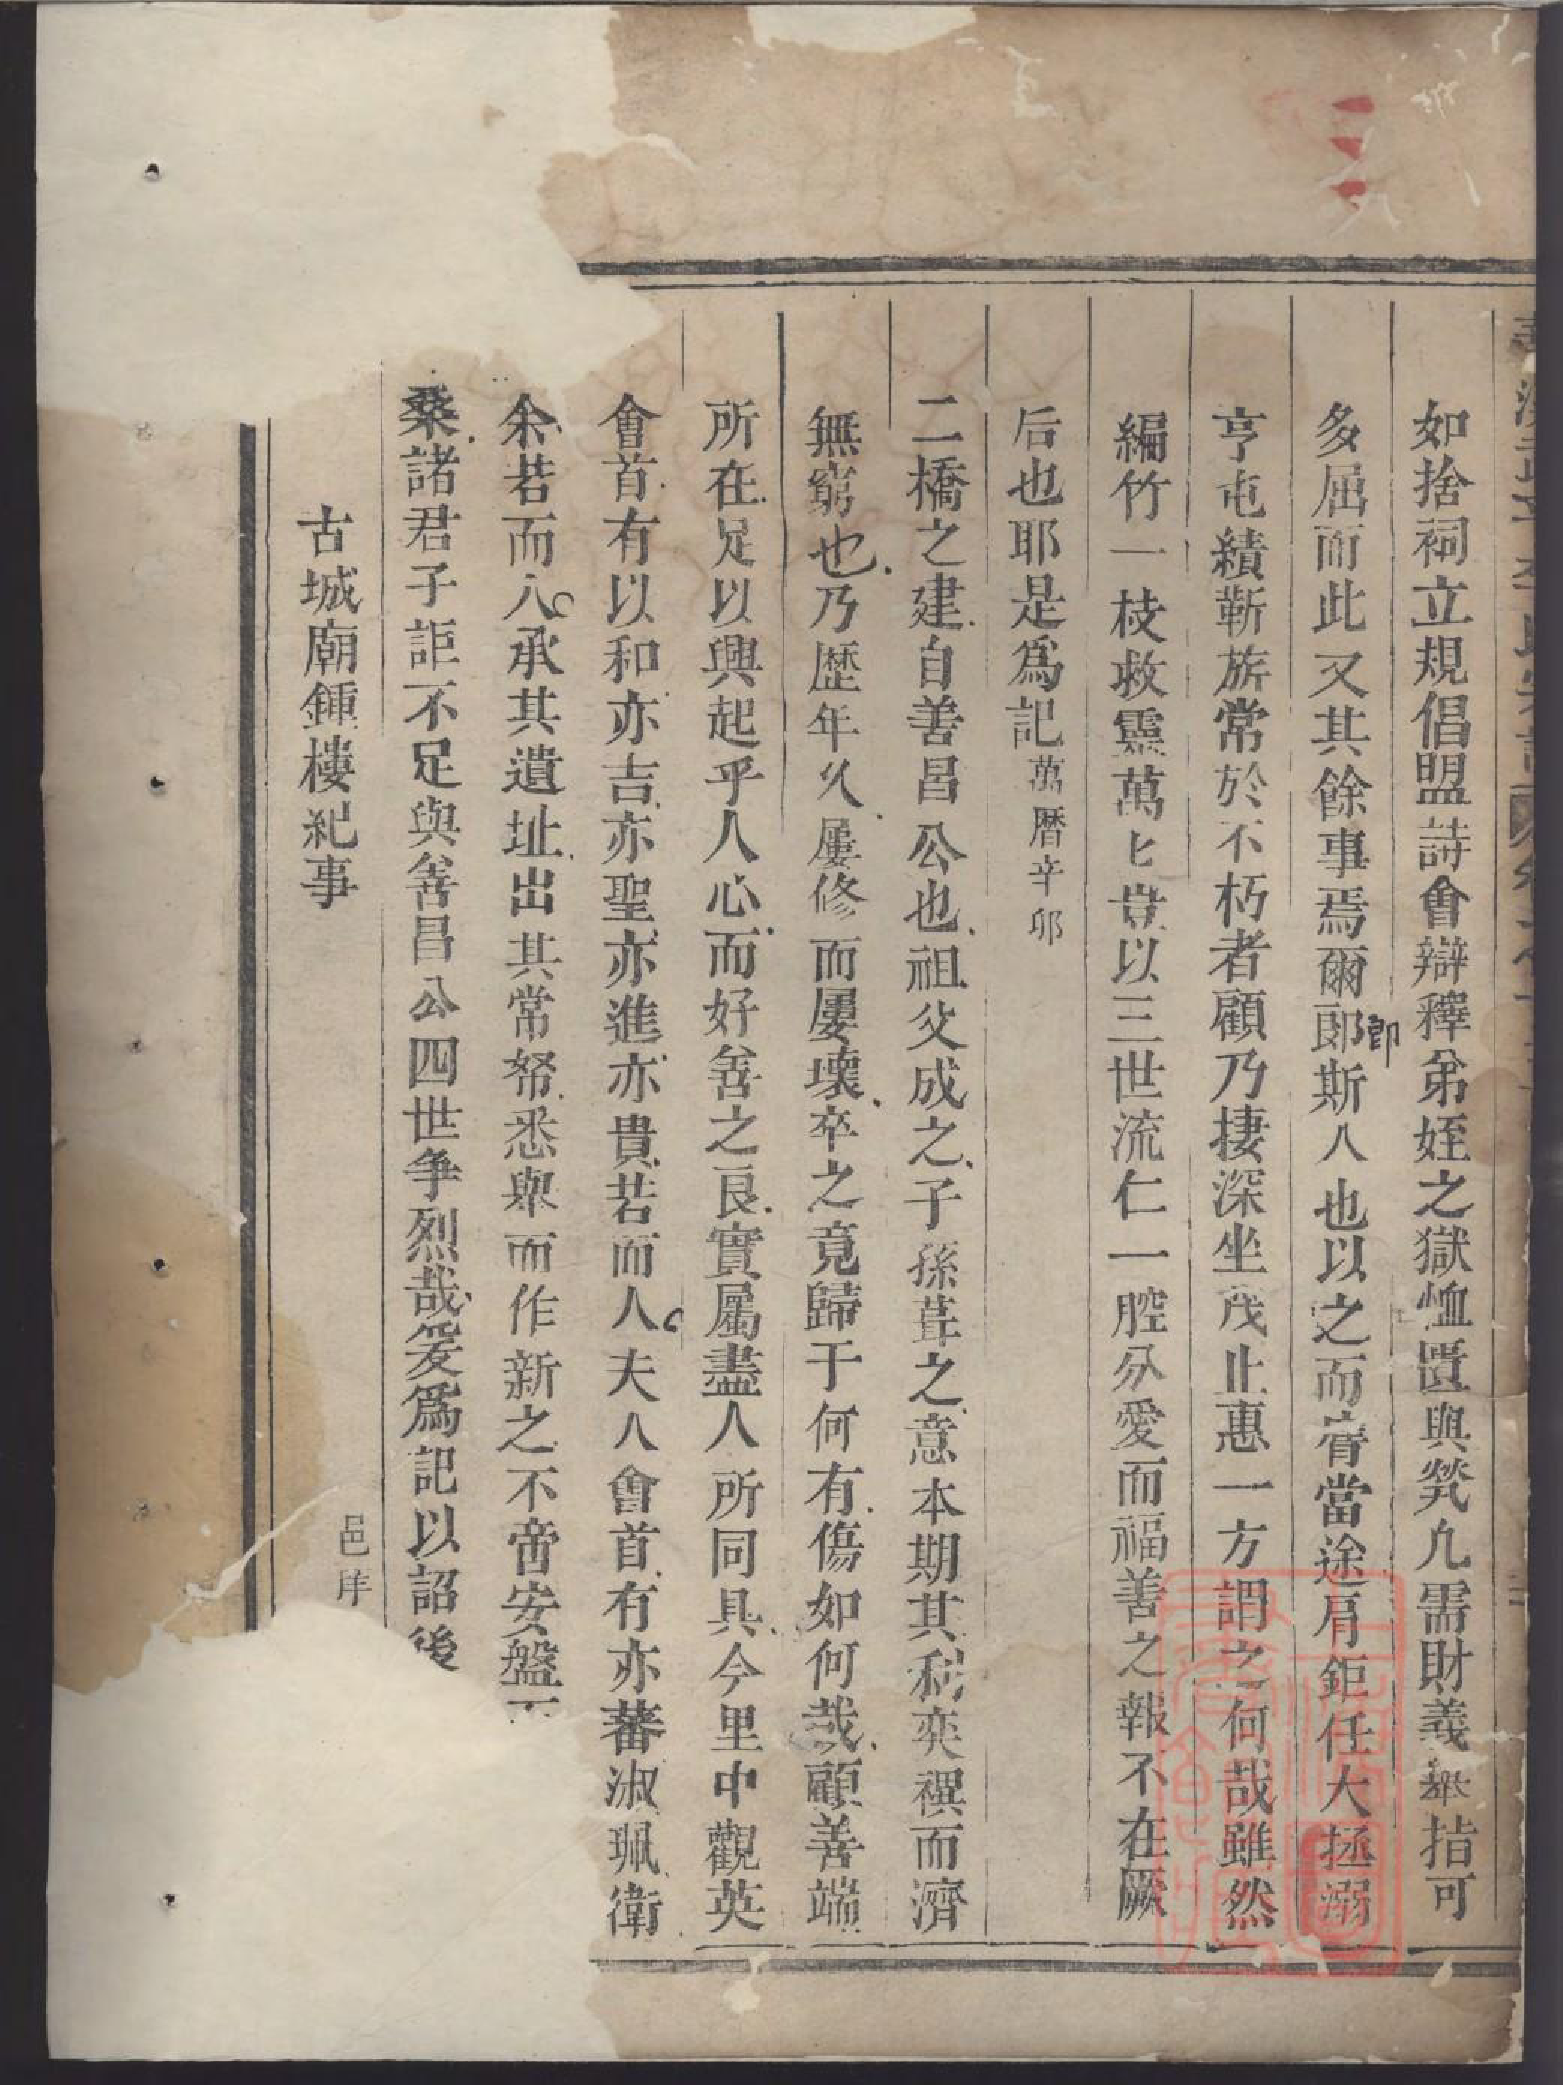 如捨祠立規倡盟詩會辯釋弟姪之獄恤匱與煢凢需財義舉指可
多屈而此又其餘事焉爾郎斯人也以之而膺當途肩鉅任大拯溺
卽
亨屯績靳旂常於不朽者顧乃棲深坐茂止惠一方謂之何哉雖然
編竹一枝救靈萬匕豈以三世流仁一腔分愛而福善之報不在厥
后也耶是爲記萬曆辛卯
二橋之建自善昌公也祖父成之子孫葺之意本期其利奕禩而濟
無窮也乃歷年久屢修而屢壞卒之竟歸于何有傷如何哉顧善端
所在足以興起乎人心而好善之良實屬盡人所同具今里中觀英
會首有以和亦吉亦聖亦進亦貴若而人夫人會首有亦蕃淑珮衛
余若而人承其遺址出其常帑悉舉而作新之不啻安盤
桑諸君子詎不足與善昌公四世爭烈哉爰爲記以詔後
邑庠
古城廟鍾樓紀事